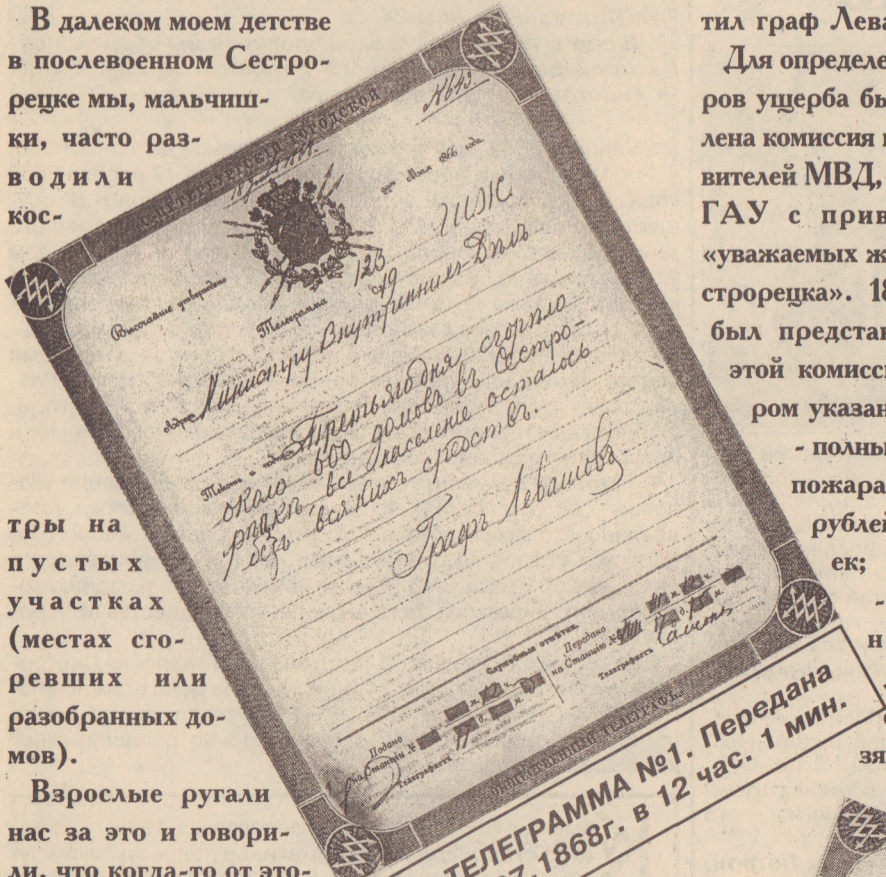 В далеком моем детстве
в послевоенном Сестро-
рецке мы, мальчиш-
ки, часто раз-
водили
кос-
тры на
пустых
участках
(местах сго-
ревших или
разобранных до-
мов).
Взрослые ругали
нас за это и говори-
ли, что когда-то от это-
С.ПЕТЕРБУРГСКІЙ ГОРОДСКОЙ
№643
Высочайше утверждено
Телеграмма
Министру Внутреннихъ Дѣлъ
Третьяго дня сгорѣло
около 600 домовъ въ Сестро-
рѣцкѣ, все населеніе осталось
безъ всякихъ средствъ.
Графъ Левашовъ
Служебныя отмѣтки.
Подано
на Станціи №
Телеграфистъ
Передано
на Станцію №
Телеграфистъ
ТЕЛЕГРАФЪ
ТЕЛЕГРАММА №1. Передана
1868г. в 12 час. 1 мин.
тил граф Лева
Для определе
ров ущерба бы
лена комиссия
вителей МВД,
ГАУ с прив
«уважаемых ж
строрецка». 18
был представ
этой комисс
ром указан
- полны
пожара
рублей
ек;
-
н
зя